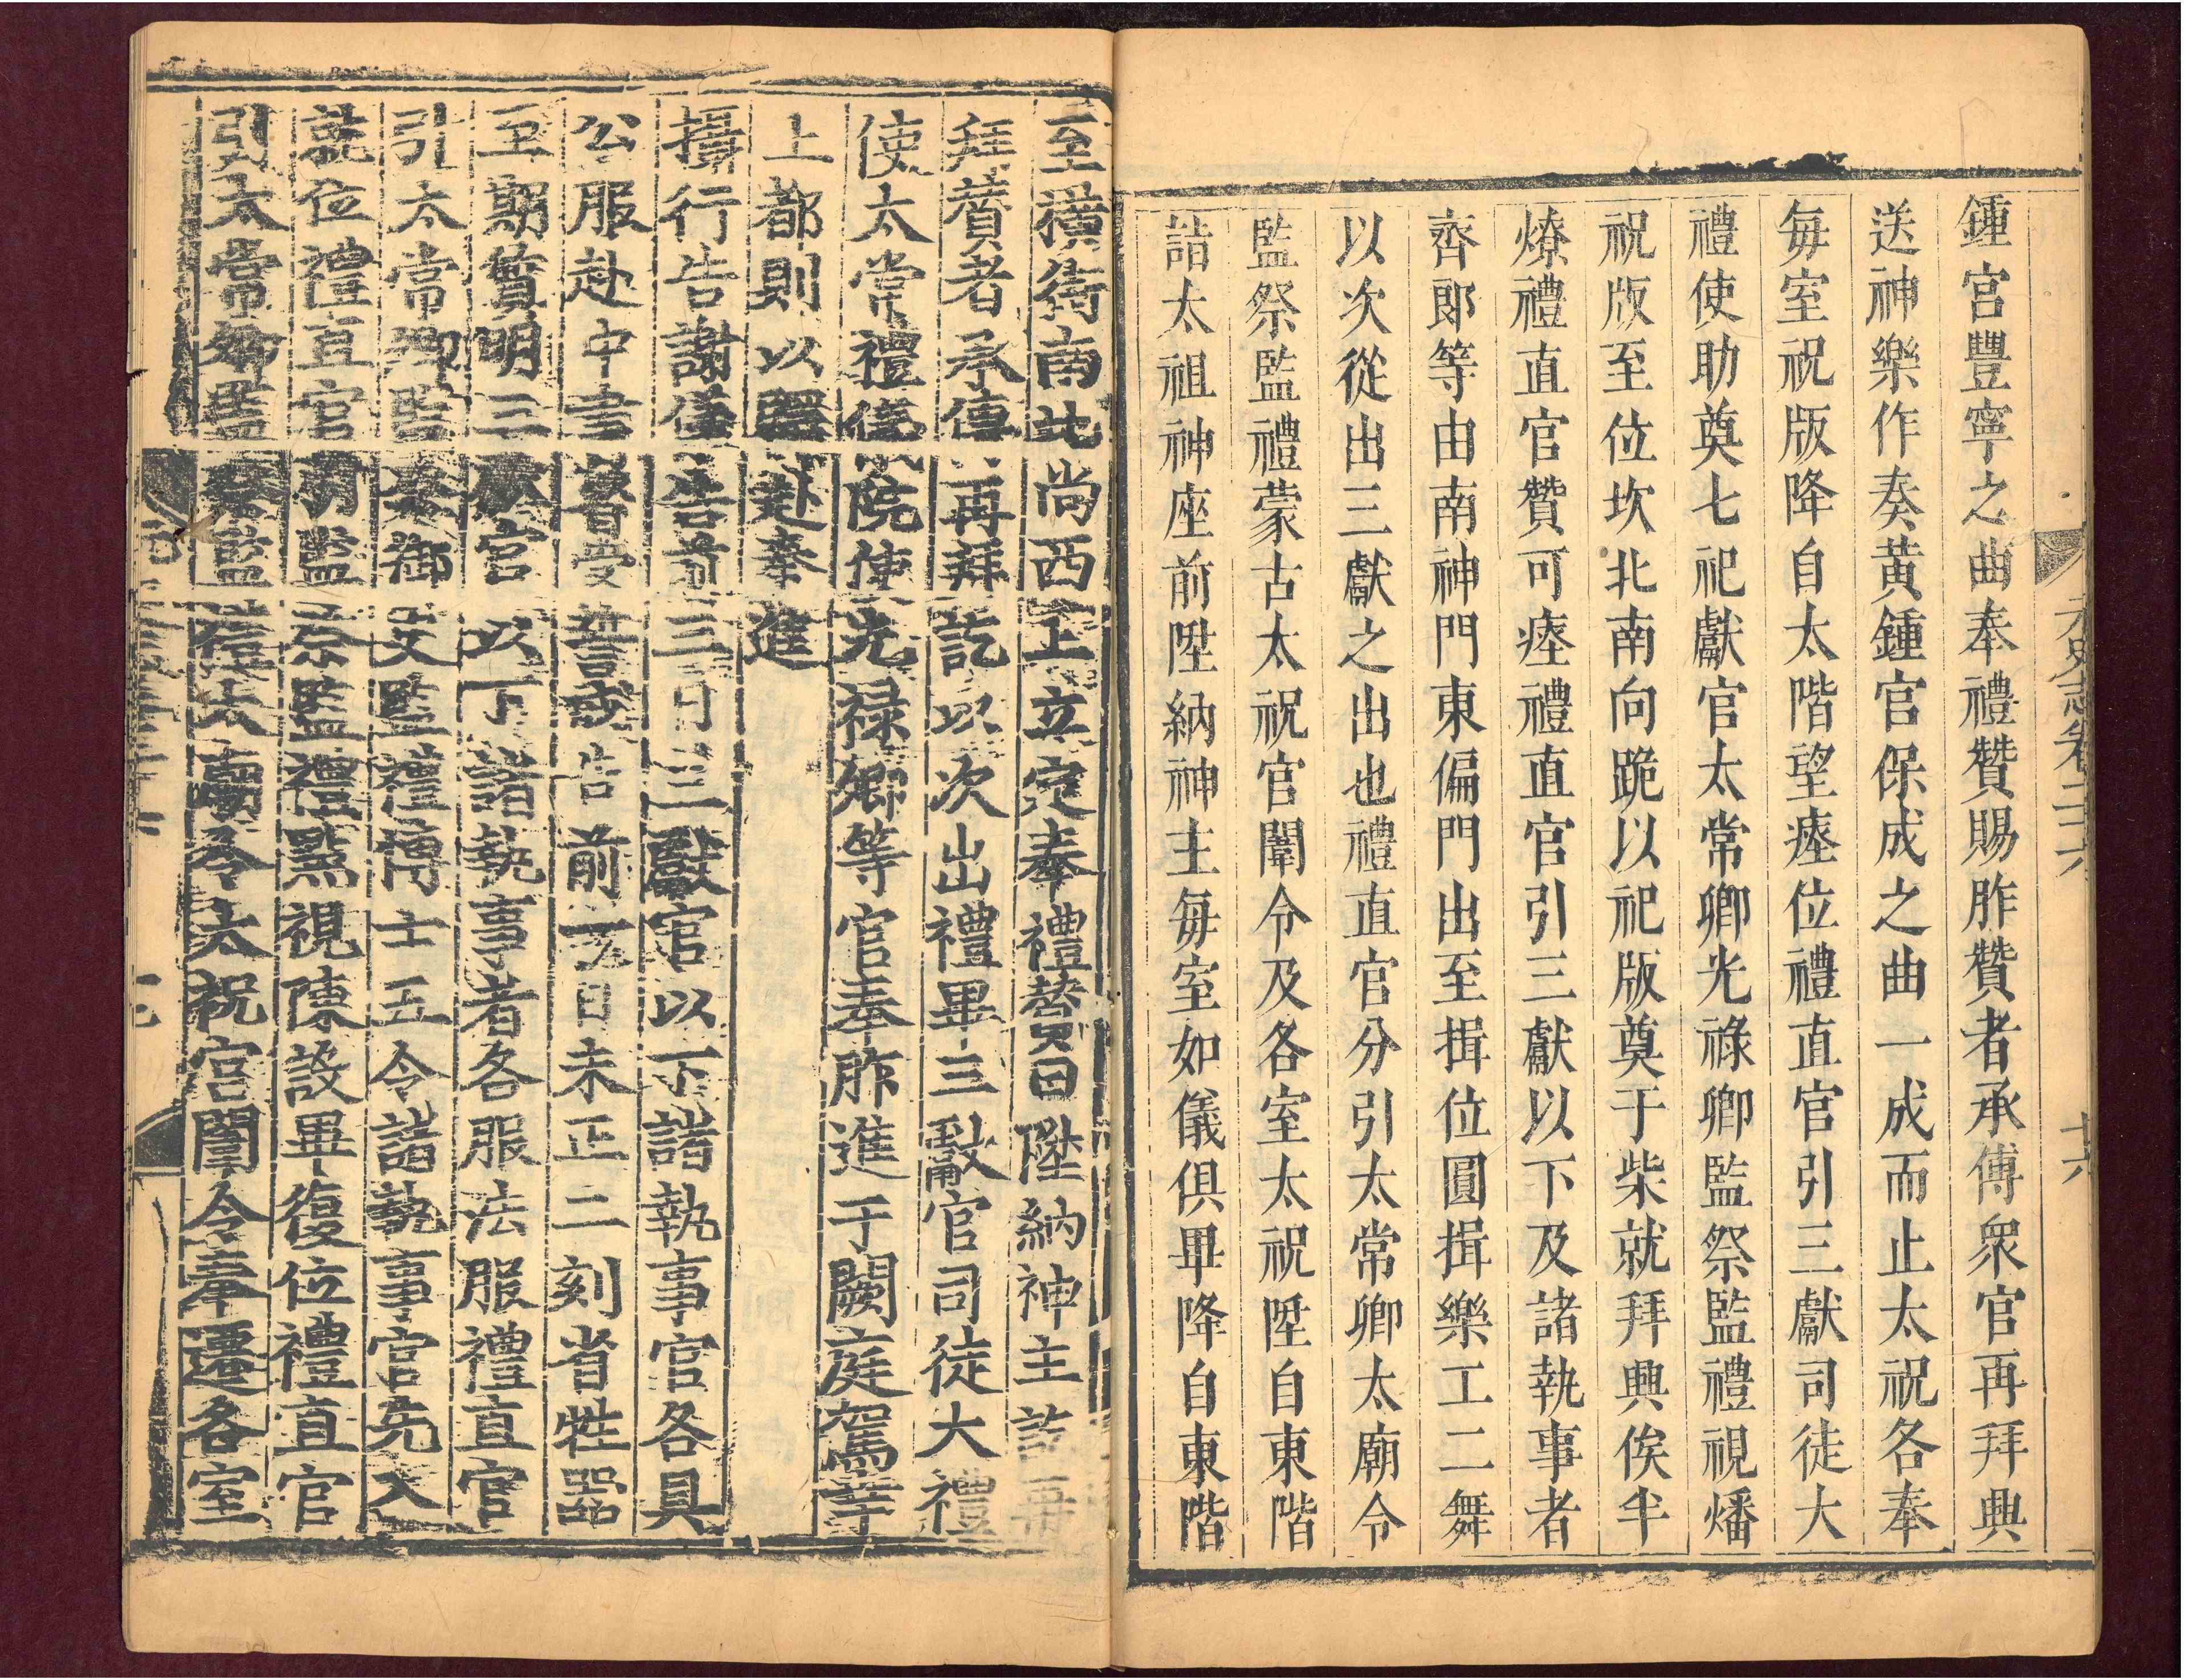 鍾宮豐寧之曲奉禮贊賜胙贊者承傳衆官再拜興
送神樂作奏黃鍾宮保成之曲一成而止太祝各奉
每室祝版降自太階望瘞位禮直官引三獻司徒大
禮使助奠七祀獻官太常卿光祿卿監祭監禮視燔
祝版至位坎北南向跪以祀版奠于柴就拜興俟半
燎禮直官贊可瘞禮直官引三獻以下及諸執事者
齊郎等由南神門東偏門出至揖位圓揖樂工二舞
以次從出三獻之出也禮直官分引太常卿太廟令
監祭監禮蒙古太祝官闈令及各室太祝陞自東階
詣太祖神座前陞納神主每室如儀俱畢降自東階
元史志卷二十六
十六
至橫街南北尚西上立定奉禮贊曰陞納神主訖再
拜贊者承傳再拜訖以次出禮畢三獻官司徒大禮
使太常禮儀院使光禄卿等官奉胙進于闕庭駕幸
上都則以驛赴奉進
攝行告謝儀告前三日三獻官以下諸執事官各具
公服赴中書省受誓戒告前一日未正二刻省牲器
至期質明三獻官以下諸執事者各服法服禮直官
引太常卿監祭御史監禮博士五令諸執事官先入
就位禮直官引監祭監禮點視陳設畢復位禮直官
引太常卿監祭監禮太廟令太祝宮闈令奉遷各室